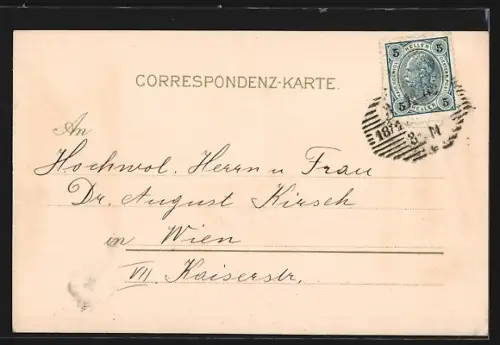 5 HELLER 5
5 HELLER 5
CORRESPONDENZ-KARTE.
18/1
8 N
An
Hochwol. Herrn u Frau
Dr. August Kirsch
in Wien
VII. Kaiserstr.